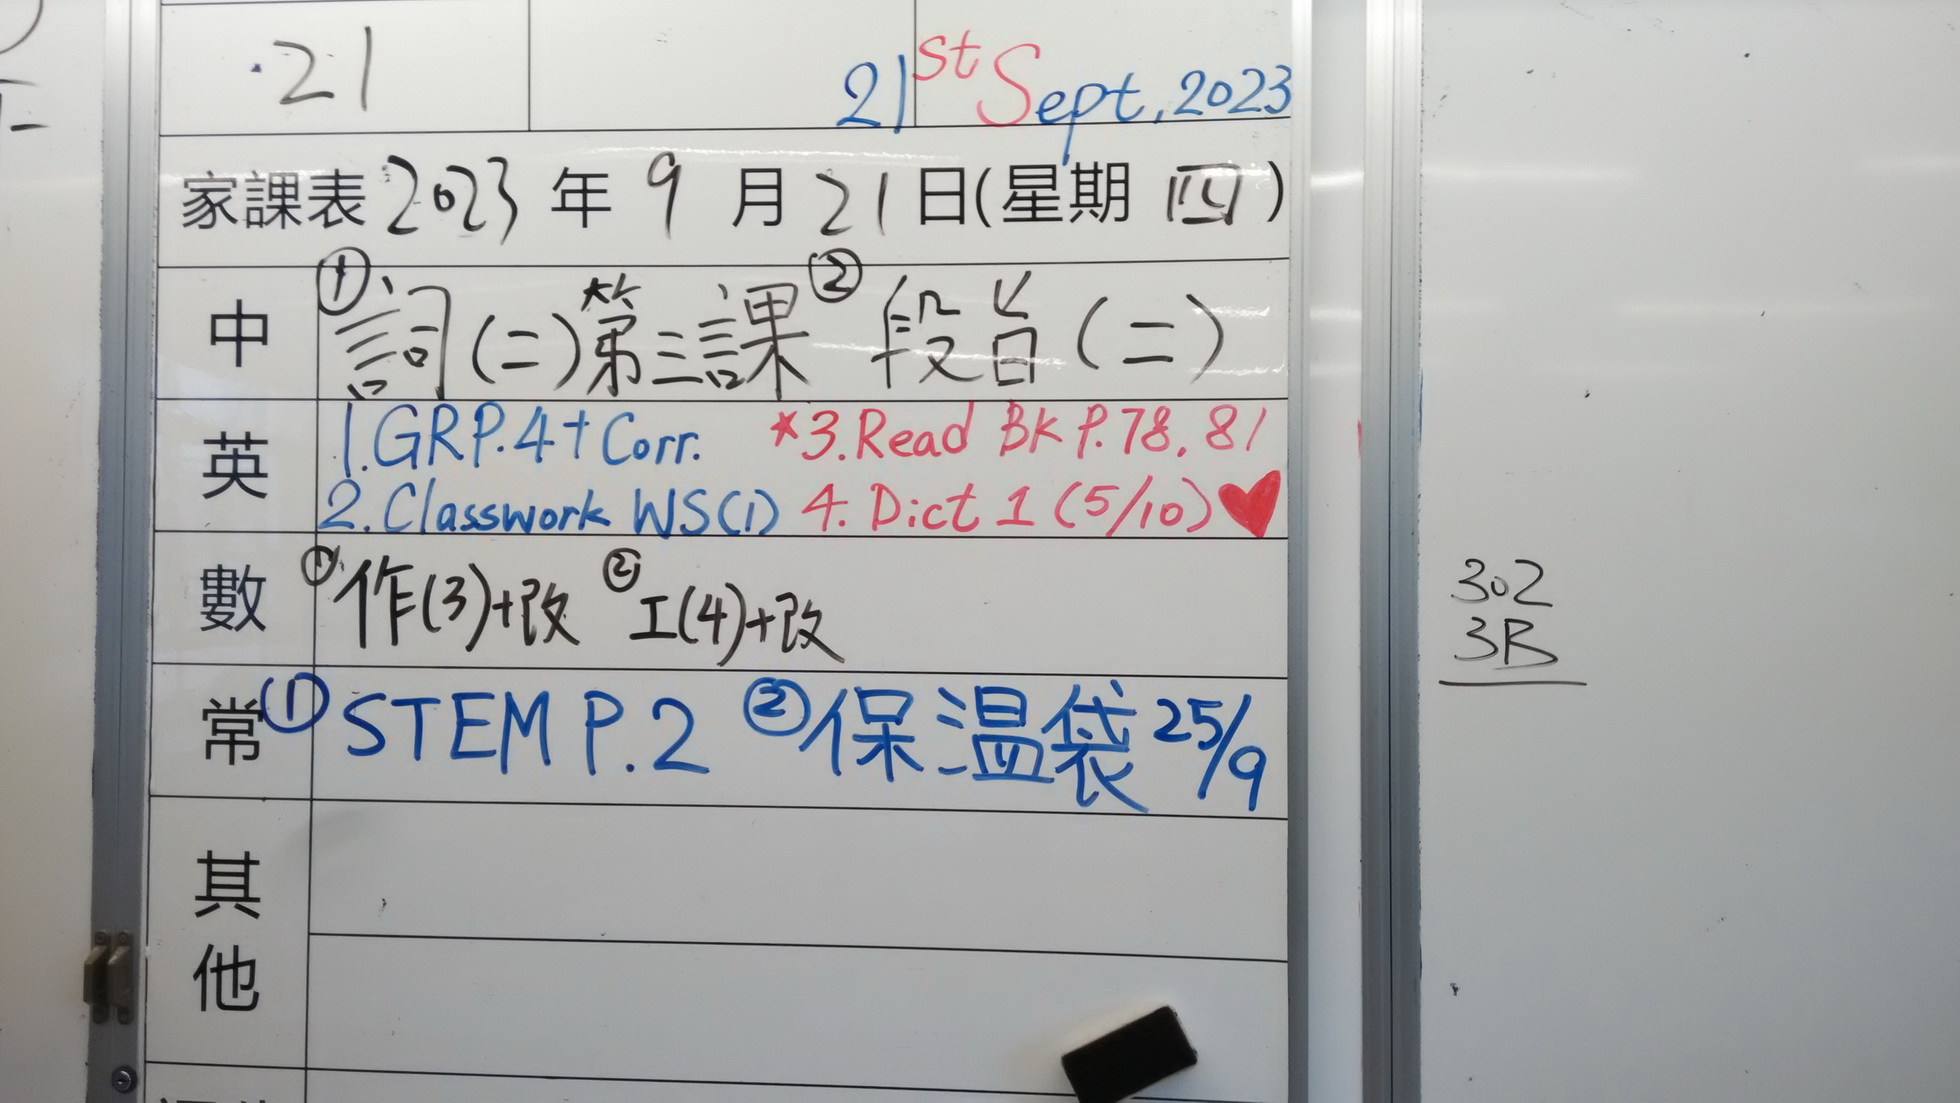 21
21st Sept, 2023
家課表 2023 年 9 月 21 日(星期 四)
中 ① 詞(二)第三課 ② 段旨(二)
英 1. GRP.4+Corr. *3. Read BK P.78, 81
2. Classwork WS(1) 4. Dict 1 (5/10) ♥
數 ① 作(3)+改 ② 工(4)+改
常 ① STEM P.2 ② 保溫袋 25/9
其他
302
3B